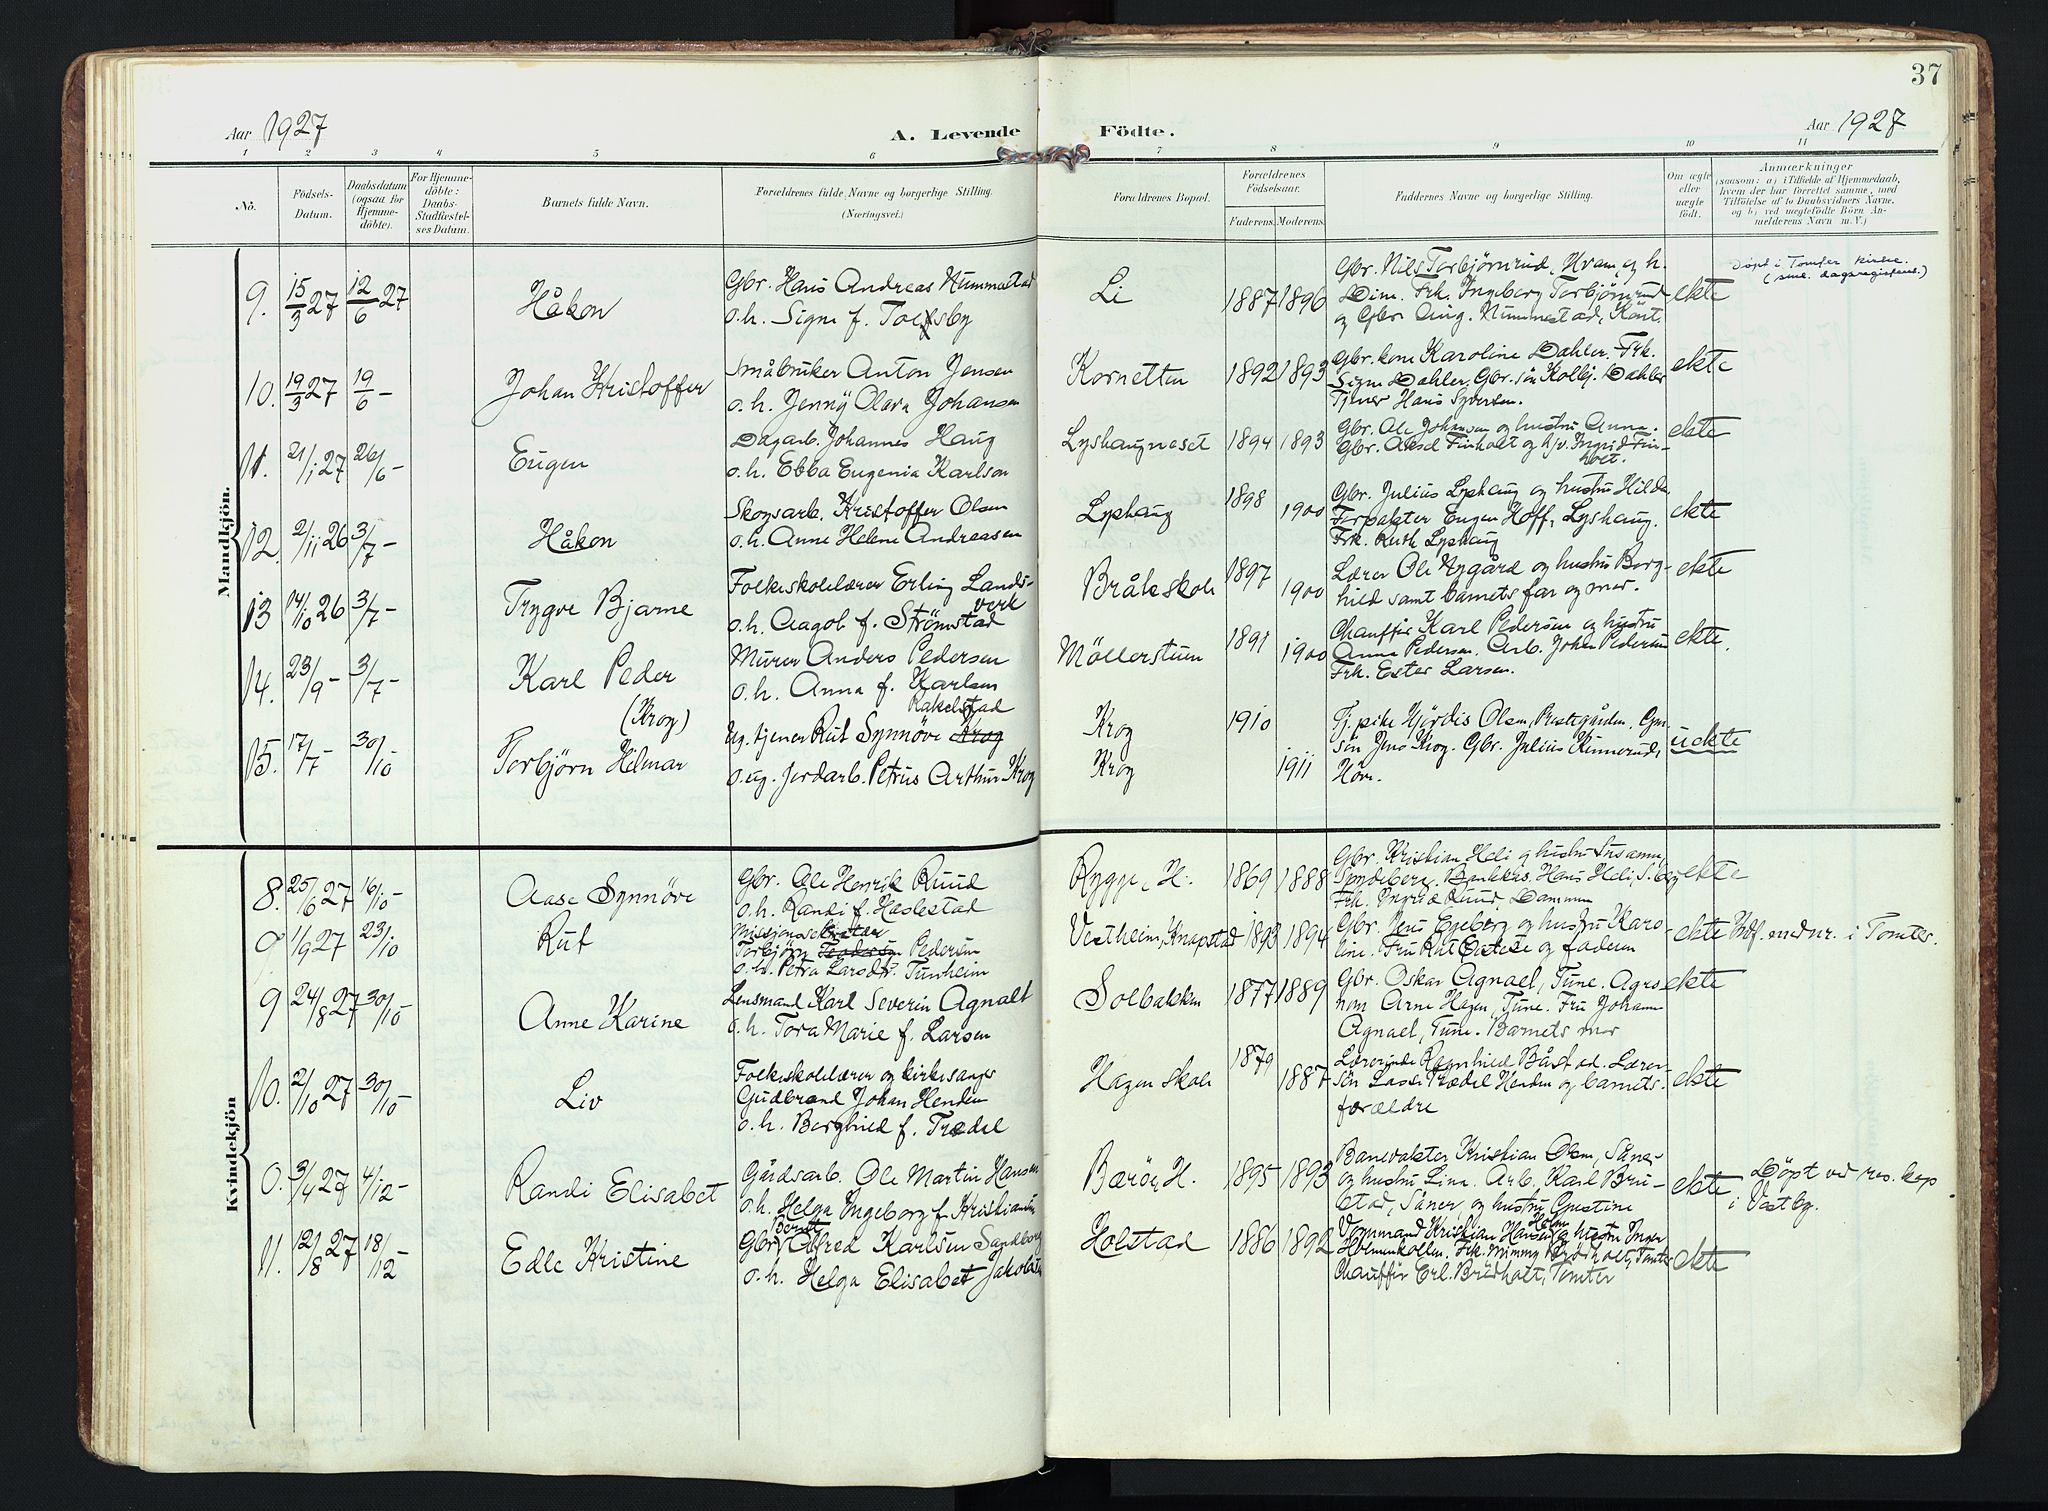 37
Aar 1927
A. Levende Födte.
Aar 1927
1 2 3 4 5 6 7 8 9 10 11
Nô.
Födsels-Datum.
Daabsdatum (ogsaa for Hjemmedöbte).
For Hjemmedöbte: Daabs-Stadfæstelses Datum.
Barnets fulde Navn.
Forældrenes fulde Navne og borgerlige Stilling. (Næringsvei.)
Forældrenes Bopæl.
Forældrenes Födselsaar.
Faderens. Moderens.
Faddernes Navne og borgerlige Stilling.
Om ægte eller uægte födt.
Anmærkninger
(saasom: a) i Tilfælde af Hjemmedaab, hvem der har forrettet samme, med Tilföielse af to Daabsvidners Navne. og b) ved uægtefödte Börn Anmelderens Navn m. V.)
Mandkjön.
9. 15/3 27 12/6 27 Håkon
Gbr. Hans Andreas Nummestad
o.h. Signe f.
Li 1887 1896
Gbr. Nils Torbjörnrud, Hvam, og h.
Dina. Frk. Ingeborg Torbjörnrud
og Gbr. Aug. Nummestad,
ekte
döpt i Tomter kirke.
(sml. dagsregisteret.)
10. 19/3 27 19/6 – Johan Kristoffer
Småbruker Anton Jensen
o.h. Jenny Olava Johansen
Kornetten 1892 1893
Gbr. kone Karoline Dahler. Frk.
Signe Dahler. Gbr. sön Kolbj. Dahler
Tjener Hans Syversen.
ekte
11. 21/1 27 26/6 – Eugen
Dagarb. Johannes Haug
o.h. Ebba Eugenia Karlson
Lyshaugneset 1894 1893
Gbr. Ole Johansen og hustru Anna.
Gbr. Aksel Finholt og h/v. Ingrid Finholt.
ekte
12. 2/11 26 3/7 – Håkon
Skogsarb. Kristoffer Olsen
o.h. Anne Helene Andreasen
Lyshaug 1898 1900
Gbr. Julius Lyshaug og hustru Hilda
Forpakter Eugen Hoff, Lyshaug.
Frk. Ruth Lyshaug
ekte
13 14/10 26 3/7 – Trygve Bjarne
Folkeskolelærer Erling Landsverk
o.h. Aagot f. Strömstad
Bråte skole 1897 1900
Lærer Ole Nygård og hustru Borghild
samt barnets far og mor.
ekte
14. 23/9 – 3/7 – Karl Peder
Murer Anders Pedersen
o.h. Anna f. Karlsen
Möllerstuen 1891 1900
Chaufför Karl Pedersen og hustru
Anna Pedersen. Arb. Johan Pedersen
Frk. Ester Larsen.
ekte.
15. 17/7 30/10 (Krog) Torbjörn Helmar
Rakelstad
Ug. tjener Rut Synnöve Krog
o. ug. Jordarb. Petrus Arthur Krog
Krog 1910
Krog 1911
Tj. pike Hjördis Olsen, Prestegården. Grd.
sön Jens Krog. Gbr. Julius Kinnerud,
uekte
Kvindekjön
8. 25/6 27 16/10 – Aase Synnöve
Gbr. Ole Henrik Ruud
o.h. Randi f. Haslestad
Rygge, H. 1869 1888
Gbr. Kristian Heli og hustru Susanna,
Hans Heli,
Frk. Ingrid Ruud,
ekte
9 1/9 27 23/10 Rut
Missjonssekretær
Torbjörn Pedersen
o.h. Petra Larsdtr. Tunheim
Vestheim, Knapstad 1893 1894
Gbr. Jens Egeberg og hustru Karoline.
Fru Rut og faderen
ekte
Indf. med nr. i Tomter.
9 24/8 27 30/10 Anne Karine
Lensmand Karl Severin Agnalt
o.h. Tora Marie f. Larsen
Solbakken 1877 1889
Gbr. Oskar Agnalt, Tune. Agronom
Arne Hagen, Tune. Fru Johanne
Agnalt, Tune. Barnets mor
ekte
10. 2/10 27 30/10 Liv
Folkeskolelærer og kirkesanger
Gudbrand Johan Henden
o.h. Borghild f. Trædal
Hagen skole 1879 1887
Lærerinde Ragnhild Båstad. Lærersön
Lasse Trædal Henden og barnets
forældre
ekte
0. 3/4 27 4/12 – Randi Elisabet
Gårdsarb. Ole Martin Hansen
o.h. Helga Ingeborg f. Kristiansen
Bæröe, H. 1895 1893
Banevokter Kristian Olsen, Såner
og hustru Line. Arb. Karl Brustad,
Såner, og hustru Gustine
ekte
Döpt ved res. kap
i Vestby.
11. 12/8 27 18/12 Edle Kristine
Gbr. Bernt Alfred Karlsen Sandborg
o.h. Helga Elisabet Jakobsen
Holstad 1886 1892
Vognmand Kristian Hansen Holm og hustru Inger
Holmenkollen. Frk. Mimmy Brödholt, Tomter
Chaufför Erl. Brödholt, Tomter
ekte